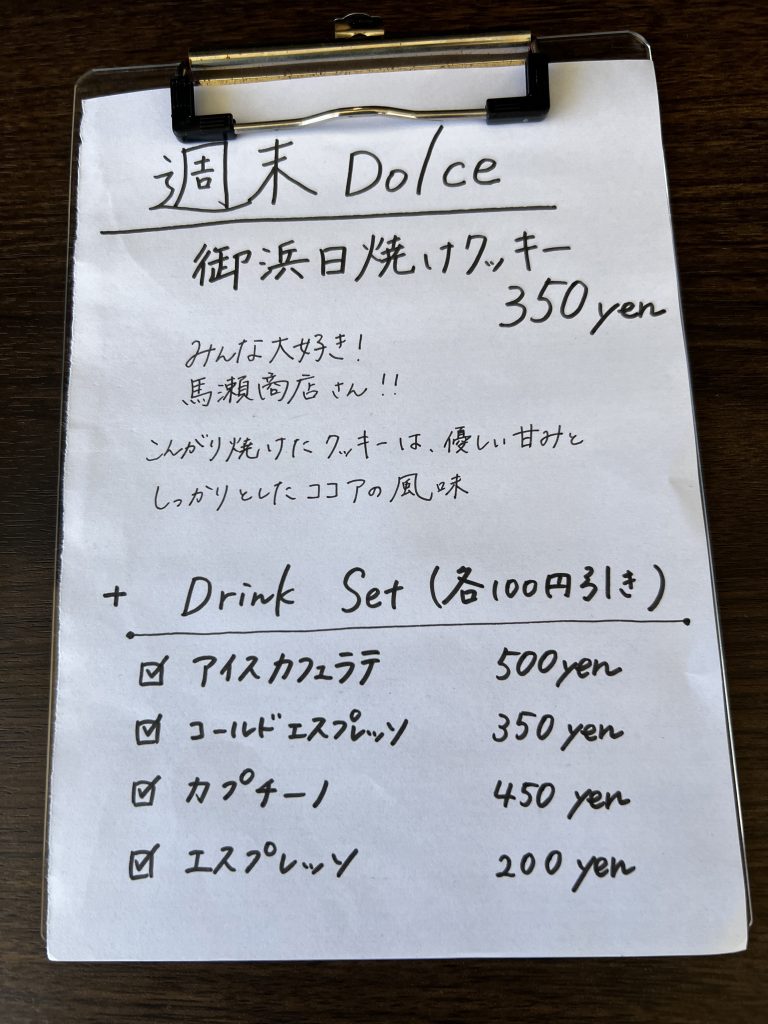 週末 Dolce
御浜日焼けクッキー
350yen
みんな大好き!
馬瀬商店さん!!
こんがり焼けたクッキーは、優しい甘みと
しっかりとしたココアの風味
+ Drink Set (各100円引き)
☑ アイスカフェラテ 500yen
☑ コールドエスプレッソ 350 yen
☑ カプチーノ 450 yen
☑ エスプレッソ 200 yen